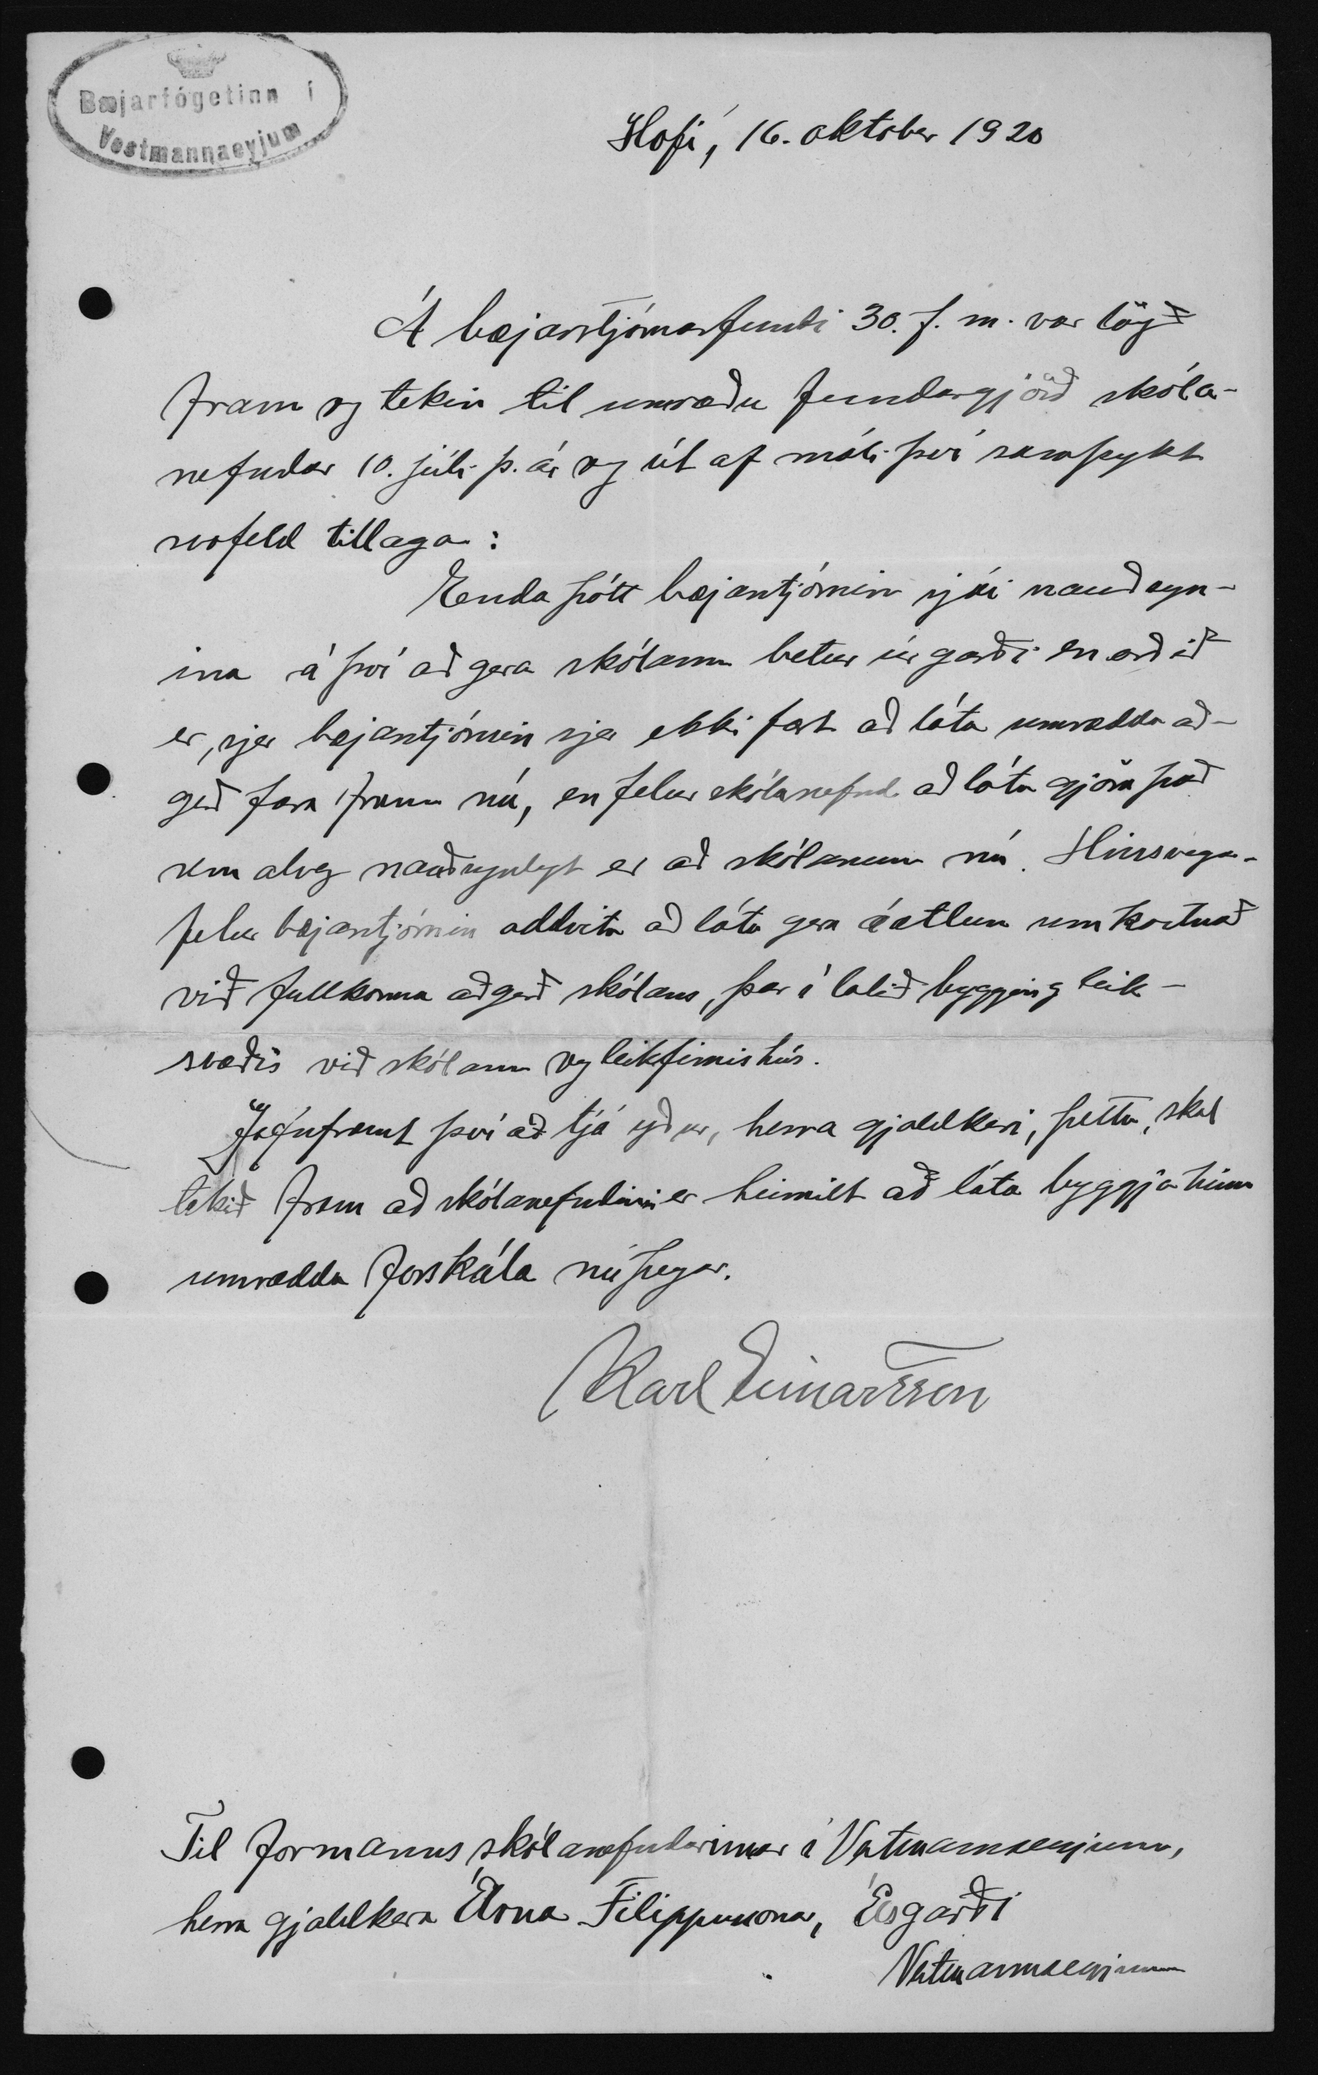 Bæjarfógetinn í
Vestmannaeyjum
Hofi, 16. oktober 1920
Á bæjarstjórnarfundi 30. f. m. var lögð
fram og tekin til umræðu fundargjörð skóla-
nefndar 10. júli þ. ár og út af máli því samþykt
svofeld tillaga:
Enda þótt bæjarstjórnin sjái nauðsyn-
ina á því að gera skólann betur úr garði en orðið
er, sjer bæjarstjórnin sjer ekki fært að láta umrædda að-
gerð fara fram nú, en felur skólanefnd að láta gjöra það
sem alveg nauðsynlegt er að skólanum nú. Hinsvegar
felur bæjarstjórnin oddvita að láta gera áætlun um kostnað
við fullkomna aðgerð skólans, þar í talið bygging leik-
svæðis við skólann og leikfimishús.
Jafnframt því að tjá yður, herra gjaldkeri, þetta, skal
tekið fram að skólanefndinni er heimilt að láta byggja hinn
umrædda forskála nú þegar.
Karl Einarsson
Til formanns skólanefndarinnar í Vestmannaeyjum,
herra gjaldkera Árna Filippussonar, Ásgarði
Vestmannaeyjum